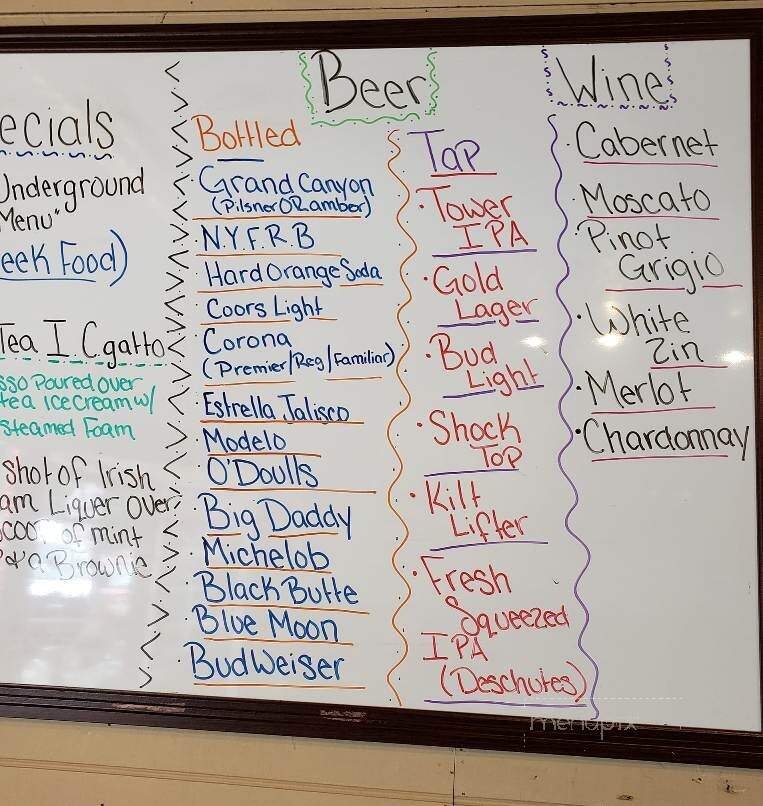 ecials
Underground
Menu"
eek Food)
Tea I C gatto
sso Poured over
tea Ice Cream w/
Steamed Foam
shot of Irish
am Liquer over
coop of mint
a Brownie
Beer
Bottled
Grand Canyon
(Pilsner OR amber)
N.Y.F.R.B
Hard Orange Soda
Coors Light
Corona
(Premier/Reg/Familiar)
Estrella Jalisco
Modelo
O'Doulls
Big Daddy
Michelob
Black Butte
Blue Moon
BudWeiser
Tap
Tower
IPA
Gold
Lager
Bud
Light
Shock
Top
Kilt
Lifter
Fresh
Squeezed
IPA
(Deschutes)
Wine
Cabernet
Moscato
Pinot
Grigio
White
Zin
Merlot
Chardonnay
menupix